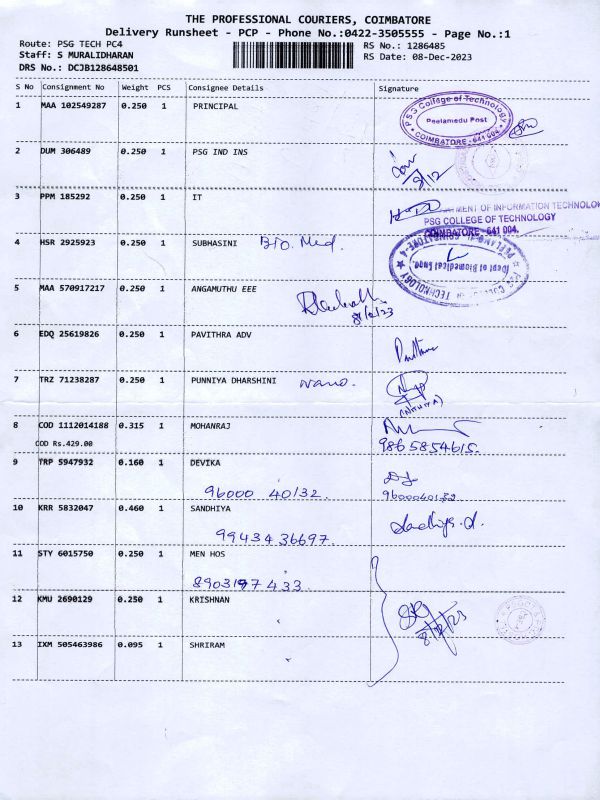 THE PROFESSIONAL COURIERS, COIMBATORE
Delivery Runsheet - PCP - Phone No.:0422-3505555 - Page No.:1
Route: PSG TECH PC4 RS No.: 1286485
Staff: S MURALIDHARAN RS Date: 08-Dec-2023
DRS No.: DCJB128648501
S No Consignment No Weight PCS Consignee Details Signature
1 MAA 102549287 0.250 1 PRINCIPAL
PSG College of Technology
Peelamedu Post
COIMBATORE - 641 004
2 DUM 306489 0.250 1 PSG IND INS
8/12
3 PPM 185292 0.250 1 IT
MENT OF INFORMATION TECHNOLO
PSG COLLEGE OF TECHNOLOGY
COIMBATORE - 641 004.
4 HSR 2925923 0.250 1 SUBHASINI Bio. Med.
Dept of Biomedical Engg.
5 MAA 570917217 0.250 1 ANGAMUTHU EEE
8/12/23
6 EDQ 25619826 0.250 1 PAVITHRA ADV
7 TRZ 71238287 0.250 1 PUNNIYA DHARSHINI nano.
(NITHYA)
8 COD 1112014188 0.315 1 MOHANRAJ
COD Rs.429.00 9865854615.
9 TRP 5947932 0.160 1 DEVIKA
96000 40132. 9600040132
10 KRR 5832047 0.460 1 SANDHIYA Sandhiya.d.
99434 36697.
11 STY 6015750 0.250 1 MEN HOS
8903197 433.
12 KMU 2690129 0.250 1 KRISHNAN
8/12/23
13 IXM 505463986 0.095 1 SHRIRAM